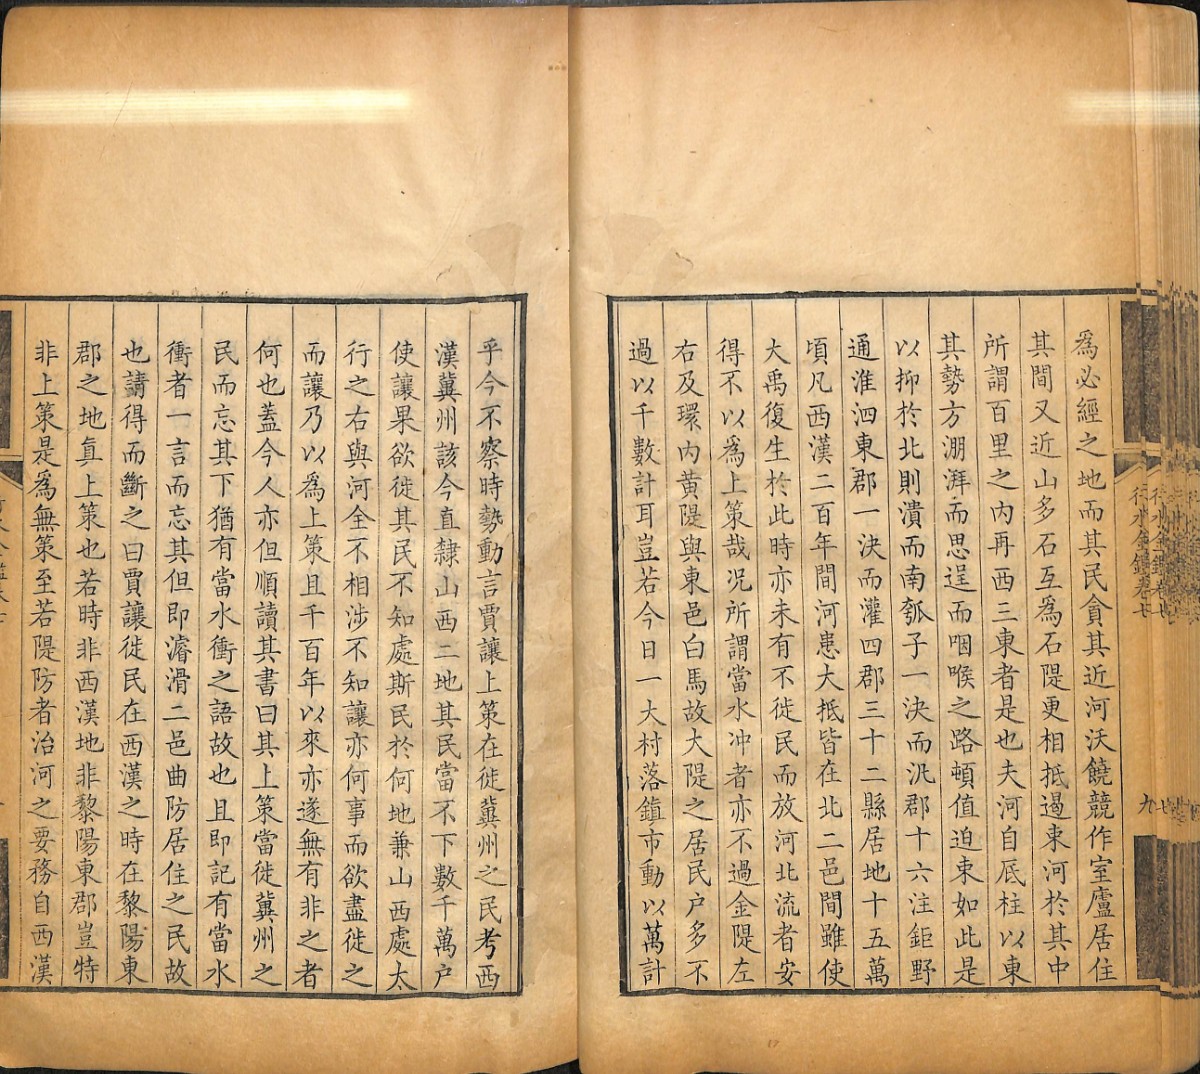 為必經之地而其民貪其近河沃饒競作室廬居住
其間又近山多石互為石隄更相抵遏束河於其中
所謂百里之內再西三東者是也夫河自厎柱以東
其勢方淜湃而思逞而咽喉之路頓值迫束如此是
以抑於北則潰而南瓠子一決而汎郡十六注鉅野
通淮泗東郡一決而灌四郡三十二縣居地十五萬
頃凡西漢二百年間河患大抵皆在北二邑間雖使
大禹復生於此時亦未有不徙民而放河北流者安
得不以為上策哉況所謂當水冲者亦不過金隄左
右及環內黄隄與東邑白馬故大隄之居民户多不
過以千數計耳豈若今日一大村落鎮市動以萬計
乎今不察時勢動言賈讓上策在徙冀州之民考西
漢冀州該今直隸山西二地其民當不下數千萬户
使讓果欲徙其民不知處斯民於何地兼山西處太
行之右與河全不相涉不知讓亦何事而欲盡徙之
而讓乃以為上策且千百年以來亦遂無有非之者
何也蓋今人亦但順讀其書曰其上策當徙冀州之
民而忘其下猶有當水衝之語故也且即記有當水
衝者一言而忘其但即濬滑二邑曲防居住之民故
也請得而斷之曰賈讓徙民在西漢之時在黎陽東
郡之地真上策也若時非西漢地非黎陽東郡豈特
非上策是為無策至若隄防者治河之要務自西漢
行水金鑑卷七
九